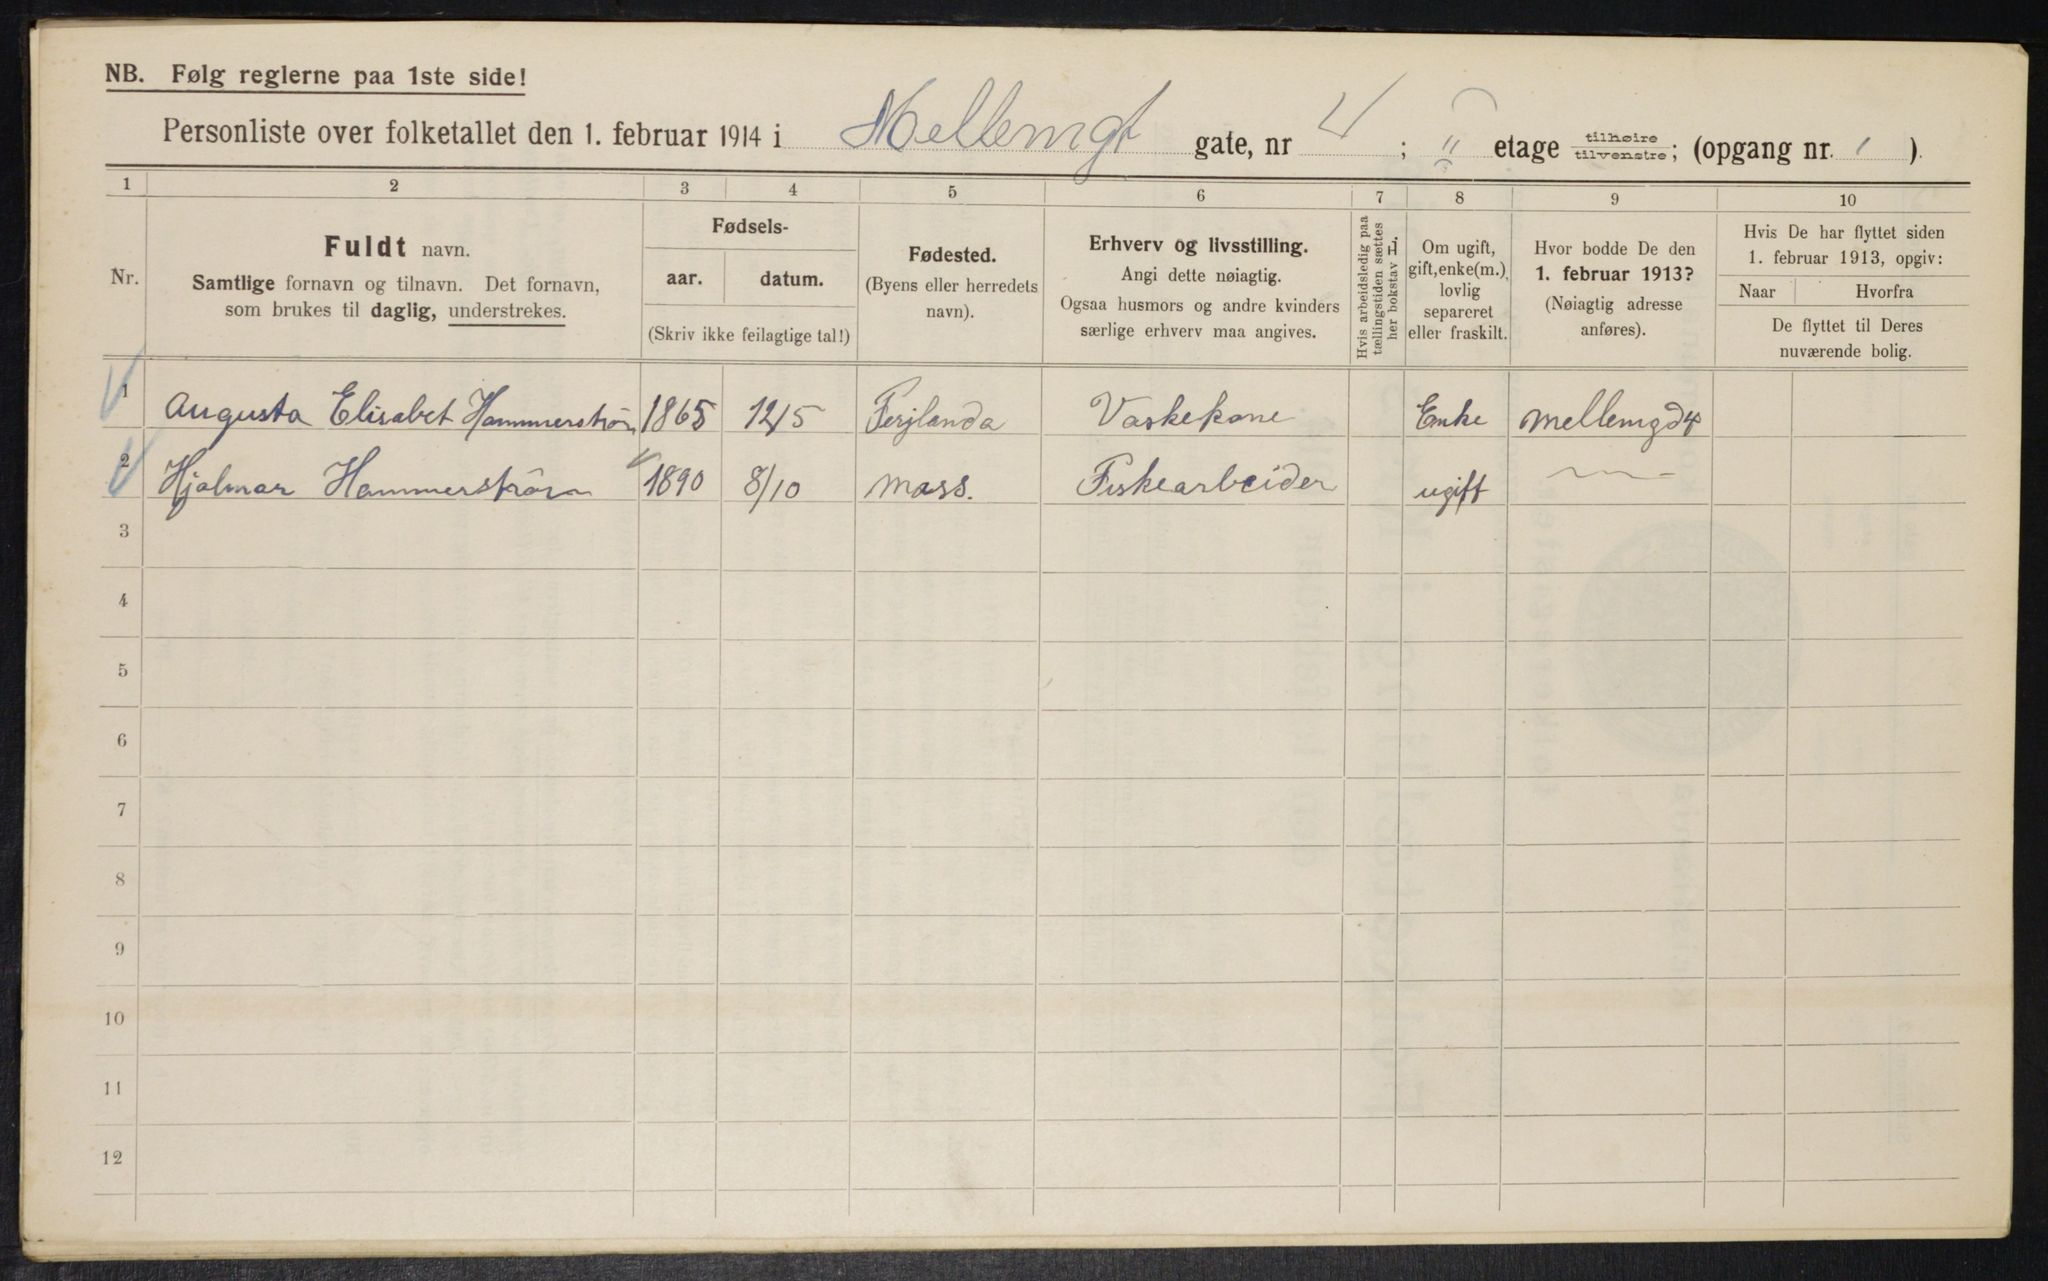 NB. Følg reglerne paa 1ste side!
Personliste over folketallet den 1. februar 1914 i Mellemgt gate, nr 4 ; " etage tilhøire tilvenstre; (opgang nr. 1 ).
1 2 3 4 5 6 7 8 9 10
Nr.
Fuldt navn.
Samtlige fornavn og tilnavn. Det fornavn,
som brukes til daglig, understrekes.
Fødsels-
aar. datum.
(Skriv ikke feilagtige tal!)
Fødested.
(Byens eller herredets
navn).
Erhverv og livsstilling.
Angi dette nøiagtig.
Ogsaa husmors og andre kvinders
særlige erhverv maa angives.
Hvis arbeidsledig paa
tællingstiden sættes
her bokstav H.
Om ugift,
gift, enke(m.),
lovlig
separeret
eller fraskilt.
Hvor bodde De den
1. februar 1913?
(Nøiagtig adresse
anføres).
Hvis De har flyttet siden
1. februar 1913, opgiv:
Naar Hvorfra
De flyttet til Deres
nuværende bolig.
1 Augusta Elisabet Hammerström 1865 12/5 Vaskekone Enke Mellemgd 4
2 Hjalmar Hammerström 1890 8/10 Mass. Fiskearbeider ugift
3
4
5
6
7
8
9
10
11
12